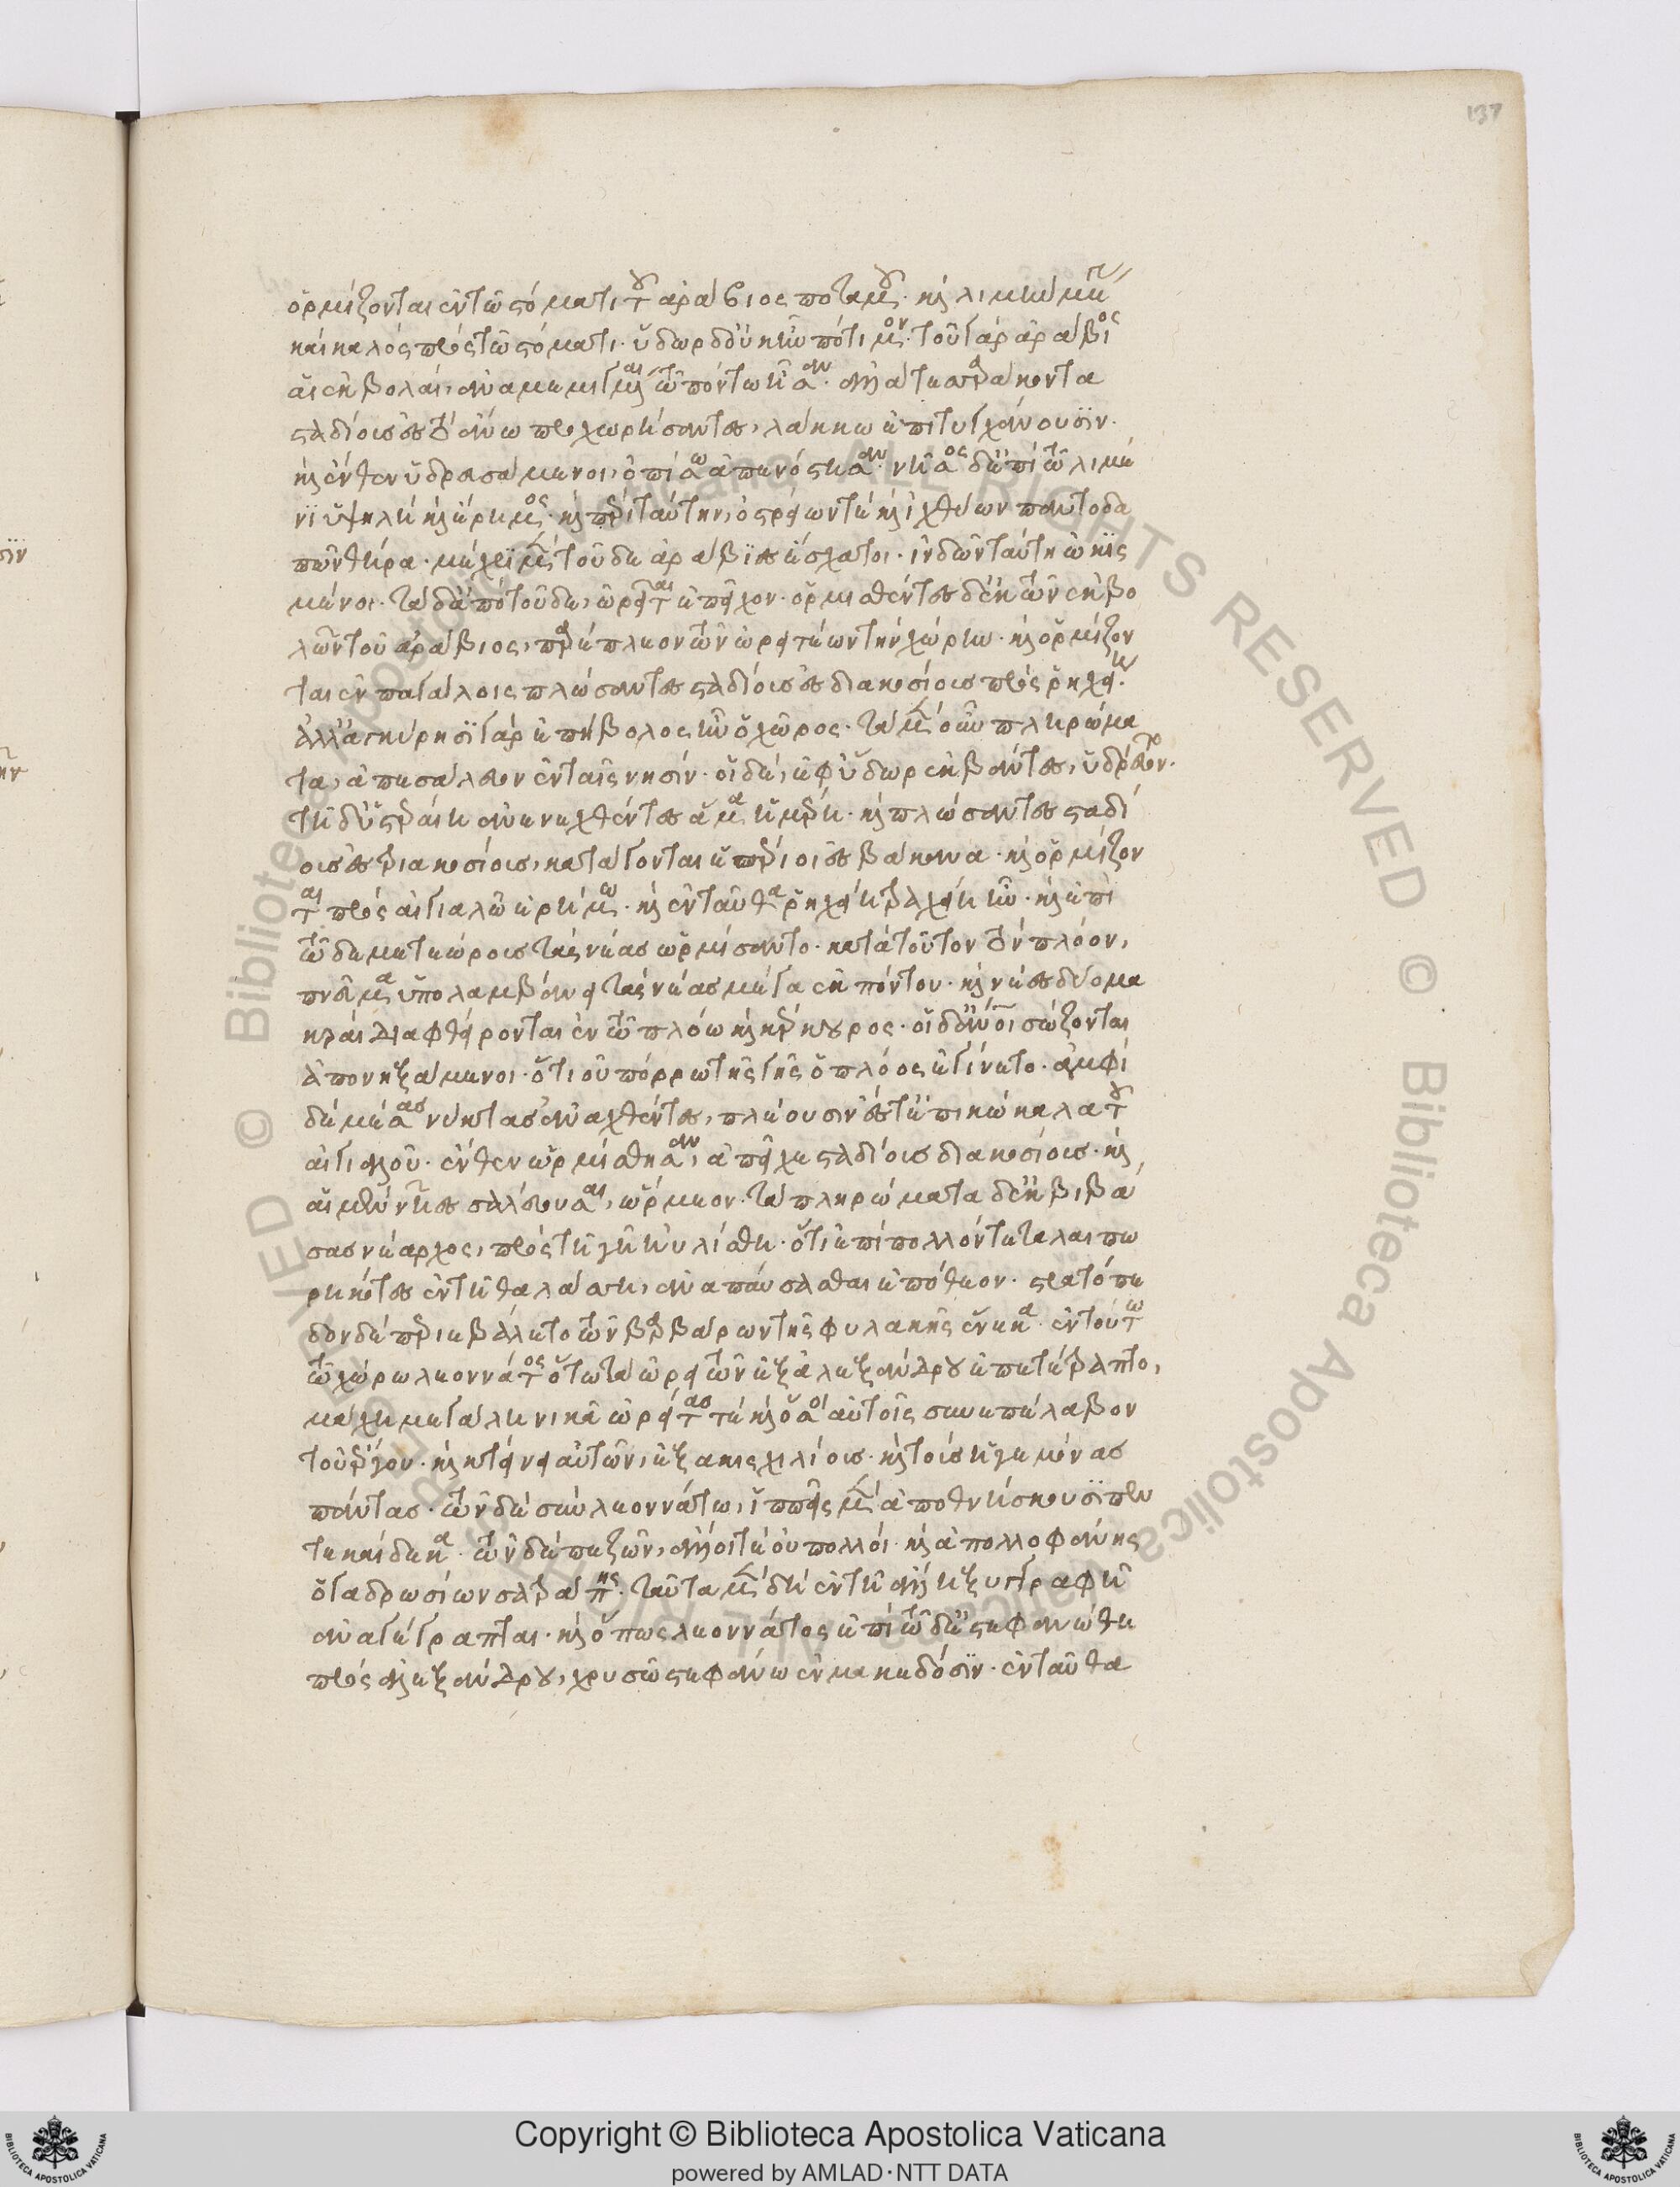 ὁρμίζονται ἐν τῶ στόματι τοῦ ἀράβιος ποταμοῦ· καὶ λιμὴν μέγ
καὶ καλὸς πρὸς τῶ στόματι· ὕδωρ δὲ οὐκ ἦν πότιμον· τοῦ γὰρ ἀράβιος
αἱ ἐκβολαὶ, ἀναμεμιγμέναι τῶ πόντω ἦσαν· ἀλλὰ τεσσαράκοντα
σταδίους ἐς τὸ ἄνω προχωρήσαντες, λάκκω ἐπιτυγχάνουσϊν·
καὶ ἔνθεν ὑδρευσάμενοι, ὀπίσω ἀπενόστησαν· νῆσος δὲ ἐπὶ τῶ λιμέ
νϊ ὑψηλὴ καὶ ἔρημος· καὶ περὶ ταύτην, ὀστρείων τὲ καὶ ἰχθύων παντοδα
πῶν θήρα· μέχρϊ μὲν τοῦδε ἀράβϊες ἔσχατοι· ἰνδῶν ταύτη ὠκϊσ
μένοι· τὰ δὲ ἀπὸ τοῦδε, ὠρεῖται ἐπεῖχον· ὁρμηθέντες δὲ ἐκ τῶν ἐκβο
λῶν τοῦ ἀράβιος, παρέπλεον τῶν ὠρειτέων τὴν χώρην· καὶ ὁρμίζον
ται ἐν παγάλοις πλώσαντες σταδίους ἐς διακοσίους πρὸς ῥηχείη·
ἀλλὰ ἀγκύρησϊ γὰρ ἐπήβολος ἦν ὁ χῶρος· τὰ μὲν οὖν πληρώμα
τα, ἀπεσάλευεν ἐν ταῖς νησίν· οἱ δὲ, ἐφ' ὕδωρ ἐκβάντες, ὑδρεύοντο·
τῆ δὲ ὑστεραίη ἀνενεχθέντες ἅμα ἡμέρη· καὶ πλώσαντες σταδί
ους ἐς τριακοσίους, κατάγονται ἑσπέριοι ἐς βάκανα· καὶ ὁρμίζον
ται πρὸς αἰγιαλῶ ἐρήμω· καὶ ἐνταῦθα ῥηχείη τραχείη ἦν· καὶ ἐπὶ
τῶδε μετεώρους τὰς νέας ὡρμίσαντο· κατὰ τοῦτον τὸν πλόον,
πνεῦμα ὑπολαμβάνει τὰς νέας μέγα ἐκ πόντου· καὶ νέες δύο μα
κραὶ διαφθείρονται ἐν τῶ πλόω καὶ κέρκουρος· οἱ δὲ ἄνθρωποι σώζονται
ἀπονηξάμενοι· ὅτι οὐ πόρρω τῆς γῆς ὁ πλόος ἐγίνετο· ἀμφὶ
δὲ μέσας νύκτας ἀναχθέντες, πλέουσιν ἔς τε ἐπὶ κώκαλα τοῦ
αἰγιαλοῦ· ἔνθεν ὡρμίσθησαν, ἀπεῖχε σταδίους διακοσίους· καὶ
αἱ μὲν νῆες σαλεύουσαι, ὥρμεον· τὰ πληρώματα δὲ ἐκβιβά
σας νέαρχος, πρὸς τῆ γῆ ηὐλίσθη· ὅτι ἐπὶ πολλόν τε ταλαιπω
ρηκότες ἐν τῆ θαλάσση, ἀναπαύσασθαι ἐπόθεον· στρατόπε
δον δὲ περιεβάλετο τῶν βαρβάρων τῆς φυλακῆς ἕνεκα· ἐν τούτω
τῶ χώρω λεοννάτος ὅτω τὰ ὠρειτῶν ἐξ ἀλεξάνδρου ἐπετέτραπτο,
μάχη μεγάλη νικᾶ ὠρείτας τὲ καὶ ὅσοι αὐτοῖς συνεπέλαβον
τοῦ ἔργου· καὶ κτείνει αὐτῶν, ἑξακισχιλίους· καὶ τοὺς ἡγεμόνας
πάντας· τῶν δὲ σὺν λεοννάτω, ἱππεῖς μὲν ἀποθνήσκουσϊ πέν
τε καὶ δέκα· τῶν δὲ πεζῶν, ἄλλοι τὲ οὐ πολλοί· καὶ ἀπολλοφάνης
ὁ γαδρωσίων σατράπης· ταῦτα μὲν δὴ ἐν τῆ ἄλλη ξυγγραφῆ
ἀναγέγραπται· καὶ ὅπως λεοννάτος ἐπὶ τῶδε ἐστεφανώθη
πρὸς ἀλεξάνδρου, χρυσῶ στεφάνω ἐν μακεδόσϊν· ἐνταῦθα
137
Copyright © Biblioteca Apostolica Vaticana
powered by AMLAD·NTT DATA